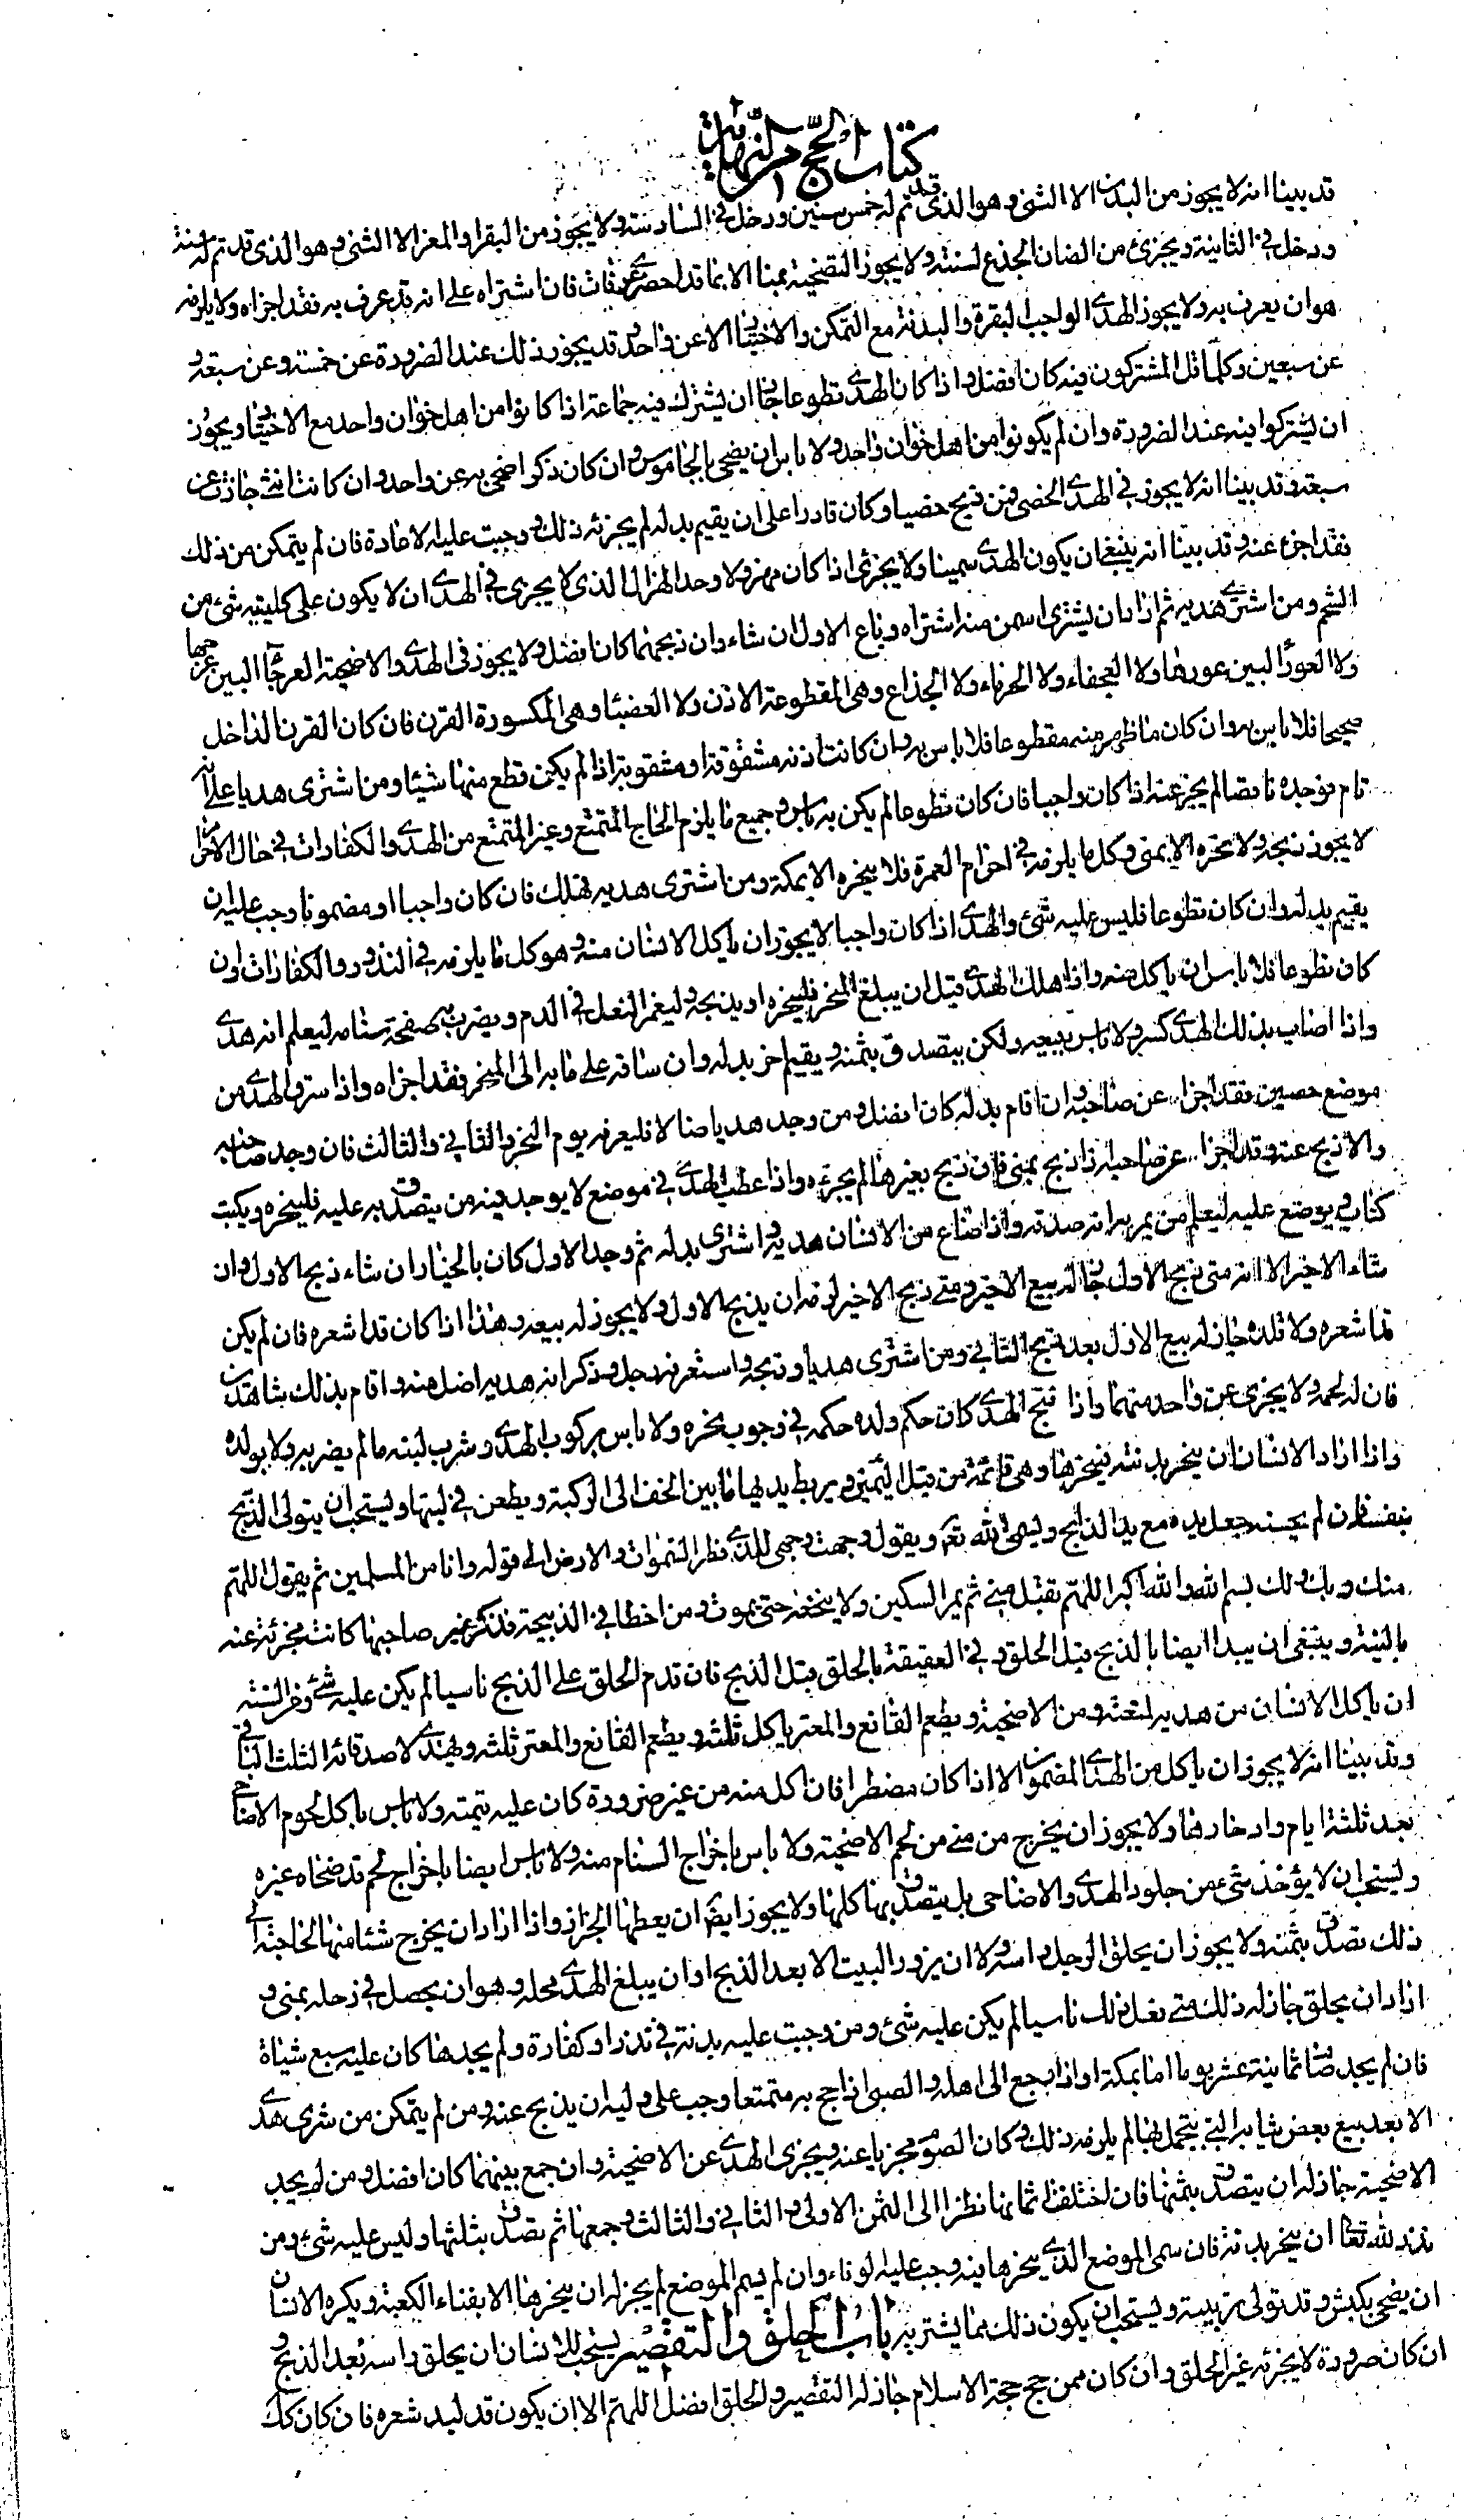 كتاب الحج من النهاية
قد بينا انه لا يجوز من البدن الا الثني وهو الذي قد تم له خمس سنين ودخل في السادسة ولا يجوز من البقر والمعز الا الثني وهو الذي قد تم له سنة
ودخل في الثانية ويجزئ من الضان الجذع لسنته ولا يجوز التضحية بمنا الا بما قد احضر عرفات فان اشتراه على انه قد عرف به فقد اجزاه ولا يلزمه
هو ان يعرف به ولا يجوز الهدى الواجب البقرة والبدنة مع التمكن والاختيار الا عن واحد وقد يجوز ذلك عند الضرورة عن خمسة وعن سبعة و
عن سبعين وكلما قل المشتركون فيه كان افضل واذا كان الهدى تطوعا جاز ان يشترك فيه جماعة اذا كانوا من اهل خوان واحد مع الاختيار ويجوز
ان يشتركوا فيه عند الضرورة وان لم يكونوا من اهل خوان واحد ولا باس ان يضحى بالجاموس وان كان ذكرا ضحى به عن واحد وان كانت انثى جازت عن
سبعة وقد بينا انه لا يجوز في الهدى الخصى فمن ذبح خصيا وكان قادرا على ان يقيم بدله لم يجزئه ذلك ووجبت عليه الاعادة فان لم يتمكن من ذلك
فقد اجزء عنه وقد بينا انه ينبغي ان يكون الهدى سمينا ولا يجزى اذا كان مهزولا وحد الهزال الذي لا يجزى في الهدى ان لا يكون على كليتيه شئ من
الشحم ومن اشترى هديه ثم اراد ان يشترى اسمن منه اشتراه وباع الاول ان شاء وان ذبحهما كان افضل ولا يجوز في الهدى والاضحية العرجا البين عرجها
ولا العورا البين عورها ولا العجفاء ولا الخرماء ولا الجذاء وهي المقطوعة الاذن ولا العضباء وهي المكسورة القرن فان كان القرن الداخل
صحيحا فلا باس به وان كان ما ظهر منه مقطوعا فلا باس به وان كانت اذنه مشقوقة او مثقوبة اذا لم يكن قطع منها شيئا ومن اشترى هديا على انه
تام فوجده ناقصا لم يجز عنه اذا كان واجبا فان كان تطوعا لم يكن به باس وجميع ما يلزم الحاج المتمتع وغير المتمتع من الهدى والكفارات في حال الاحرام
لا يجوز ذبحه ولا نحره الا بمنى وكل ما يلزمه في احرام العمرة فلا ينحره الا بمكة ومن اشترى هديه فهلك فان كان واجبا او مضمونا وجب عليه ان
يقيم بدله وان كان تطوعا فليس عليه شئ والهدى اذا كان واجبا لا يجوز ان ياكل الانسان منه وهو كل ما يلزمه في النذور والكفارات وان
كان تطوعا فلا باس ان ياكل منه واذا هلك الهدى قبل ان يبلغ المنحر فلينحره او يذبحه وليغمر النعل في الدم ويضرب به صفحة سنامه ليعلم انه هدى
واذا اصاب بذلك الهدى كسر ولا باس ببيعه ولكن يتصدق بثمنه ويقيم اخر بدله وان ساقه على ما به الى المنحر فقد اجزاه واذا سرق الهدى من
موضع حصين فقد اجزا عن صاحبه وان اقام بدله كان افضل ومن وجد هديا ضالا فليعرفه يوم النحر والثاني والثالث فان وجد صاحبه
والا ذبح عنه وقد اجزا عن صاحبه اذا ذبح بمنى فان ذبح بغيرها لم يجزءه واذا عطب الهدى في موضع لا يوجد فيه من يتصدق به عليه فلينحره ويكتب
كتابا ويوضع عليه ليعلم من يمر به انه صدقة واذا ضاع من الانسان هديه واشترى بدله ثم وجد الاول كان بالخيار ان شاء ذبح الاول وان
شاء الاخير الا انه متى ذبح الاول جاز له بيع الاخير ومتى ذبح الاخير لزمه ان يذبح الاول ولا يجوز له بيعه وهذا اذا كان قد اشعره فان لم يكن
قد اشعره ولا قلده جاز له بيع الاول بعد ذبح الثاني ومن اشترى هديا وذبحه واستعرفه رجل وذكر انه هديه اضل منه واقام بذلك شاهدين
فان له لحمه ولا يجزى عن واحد منهما واذا نتج الهدى كان حكم ولده حكمه في وجوب نحره ولا باس بركوب الهدى وشرب لبنه ما لم يضر به ولا بولده
واذا اراد الانسان ان ينحر بدنته فينحرها وهي قائمة من قبل اليمين ويربط يديها ما بين الخف الى الركبة ويطعن في لبتها ويستحب ان يتولى الذبح
بنفسه فان لم يحسنه جعل يده مع يد الذابح وليسمى الله تعم ويقول وجهت وجهي للذي فطر السموات والارض الى قوله وانا من المسلمين ثم يقول اللهم
منك وبك ولك بسم الله والله اكبر اللهم تقبل مني ثم يمر السكين ولا ينخعه حتى يموت ومن اخطا في الذبيحة فذكر غير صاحبها كانت مجزئة عنه
بالنية وينبغي ان يبدا ايضا بالذبح قبل الحلق وفي العقيقة بالحلق قبل الذبح فان قدم الحلق على الذبح ناسيا لم يكن عليه شئ ومن السنة
ان ياكل الانسان من هديه لمتعته ومن الاضحية ويطعم القانع والمعتر ياكل ثلثه ويطعم القانع والمعتر ثلثه ويهدى لاصدقائه الثلث الباقي
وقد بينا انه لا يجوز ان ياكل من الهدى المضمون الا اذا كان مضطرا فان اكل منه من غير ضرورة كان عليه قيمته ولا باس باكل لحوم الاضاحي
بعد ثلثة ايام وادخارها ولا يجوز ان يخرج من منى من لحم الاضحية ولا باس باخراج السنام منه ولا باس ايضا باخراج لحم قد ضحاه غيره
ويستحب ان لا يؤخذ شئ من جلود الهدى والاضاحي بل يتصدق بها كلها ولا يجوز ايضا ان يعطها الجزار واذا اراد ان يخرج شئا منها لحاجته الى
ذلك تصدق بثمنه ولا يجوز ان يحلق الرجل راسه ولا ان يزور البيت الا بعد الذبح او ان يبلغ الهدى محله وهو ان يحصل في رحله بمنى و
اذا اراد ان يحلق جاز له ذلك ومتى فعل ذلك ناسيا لم يكن عليه شئ ومن وجبت عليه بدنة في نذر او كفارة ولم يجدها كان عليه سبع شياة
فان لم يجد صام ثمانية عشر يوما اما بمكة او اذا رجع الى اهله والصبي اذا حج به متمتعا وجب على وليه ان يذبح عنه ومن لم يتمكن من شرى هدى
الا بعد بيع بعض ثيابه التي يتجمل بها لم يلزمه ذلك وكان الصوم مجزيا عنه ويجزى الهدى عن الاضحية وان جمع بينهما كان افضل ومن لم يجد
الاضحية جاز له ان يتصدق بثمنها فان اختلفت اثمانها نظر الى الثمن الاول والثاني والثالث وجمعها ثم تصدق بثلثها وليس عليه شئ ومن
نذر لله تعا ان ينحر بدنة فان سمى الموضع الذي ينحرها فيه وجب عليه الوفاء وان لم يسم الموضع لم يجز له ان ينحرها الا بفناء الكعبة ويكره الانسان
ان يضحى بكبش وقد تولى تربيته ويستحب ان يكون ذلك مما يشتريه باب الحلق والتقصير يستحب للانسان ان يحلق راسه بعد الذبح و
ان كان صرورة لا يجزئه غير الحلق وان كان ممن حج حجة الاسلام جاز له التقصير والحلق افضل اللهم الا ان يكون قد لبد شعره فان كان كك